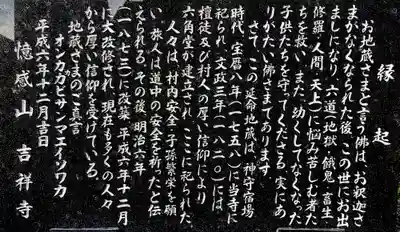 縁起
お地蔵さまと言う佛は、お釈迦さ
まがなくなられた後、この世にお出
ましになり、六道(地獄・餓鬼・畜生・
修羅・人間・天上)に悩み苦しむ者た
ちを救い、また、幼くしてなくなった
子供たちを守ってくださる、実にあ
りがたい佛さまであります。
さて、この延命地蔵は、神守宿場
時代、宝暦八年(一七五八)に当寺に
祀られ、文政三年(一八二〇)には、
檀徒及び村人の厚い信仰により
六角堂が建立され、ここに祀られた。
人々は、村内安全・子孫繁栄を願
い、旅人は道中の安全を祈ったと伝
えられる。その後、明治六年
(一八七三)に改築、平成六年十二月
に大改修され、現在も多くの人々
から厚い信仰を受けている。
地蔵さまのご真言
オンカカカビサンマエイソワカ
平成六年十二月吉日
憶感山吉祥寺